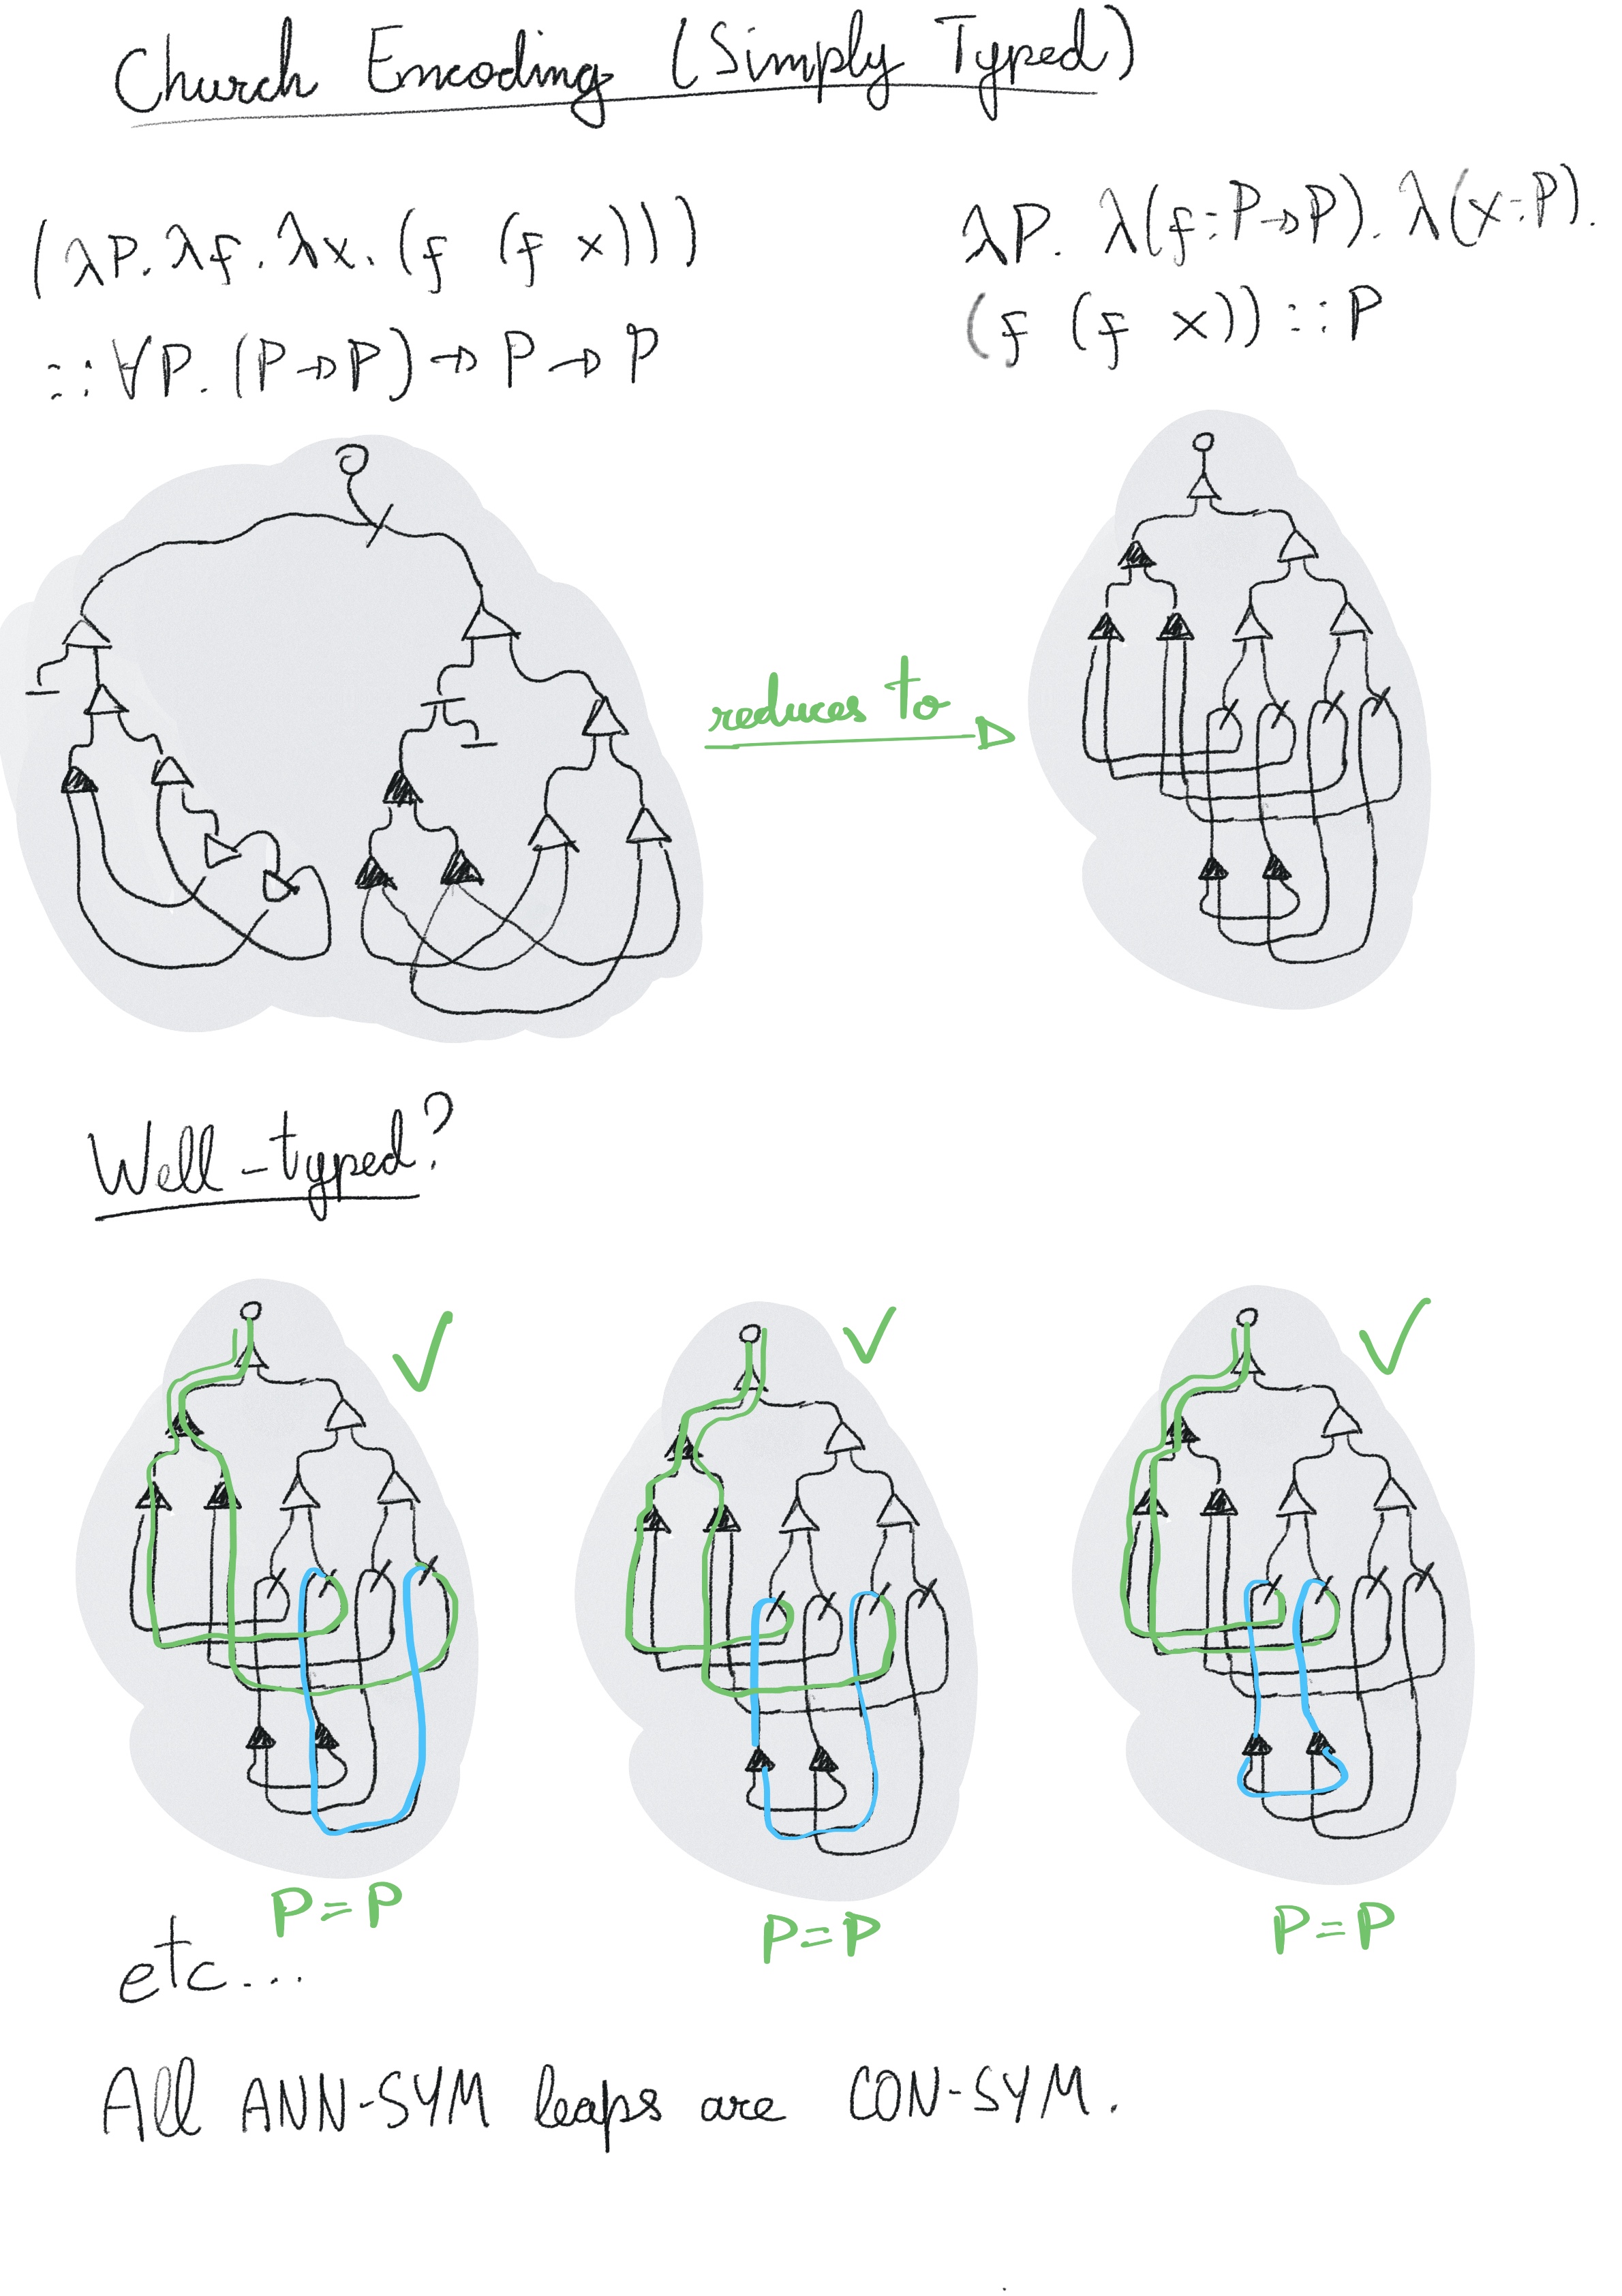 Church Encoding (Simply Typed)
(λP. λf. λx. (f (f x)))
:: ∀P. (P→P) → P → P
λP. λ(f:P→P). λ(x:P).
(f (f x)) :: P
reduces to
Well-typed?
P=P
P=P
P=P
etc...
All ANN-SYM leaps are CON-SYM.